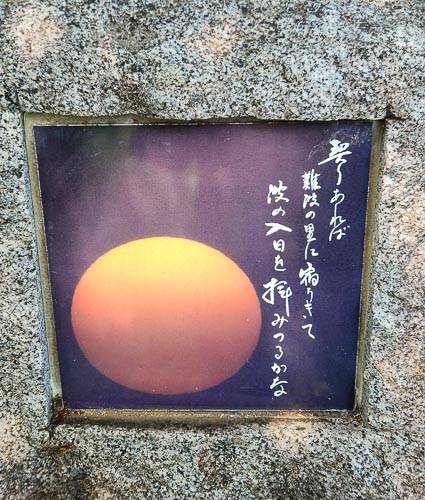 契りあれば
難波の里に宿りきて
波の入日を拝みつるかな